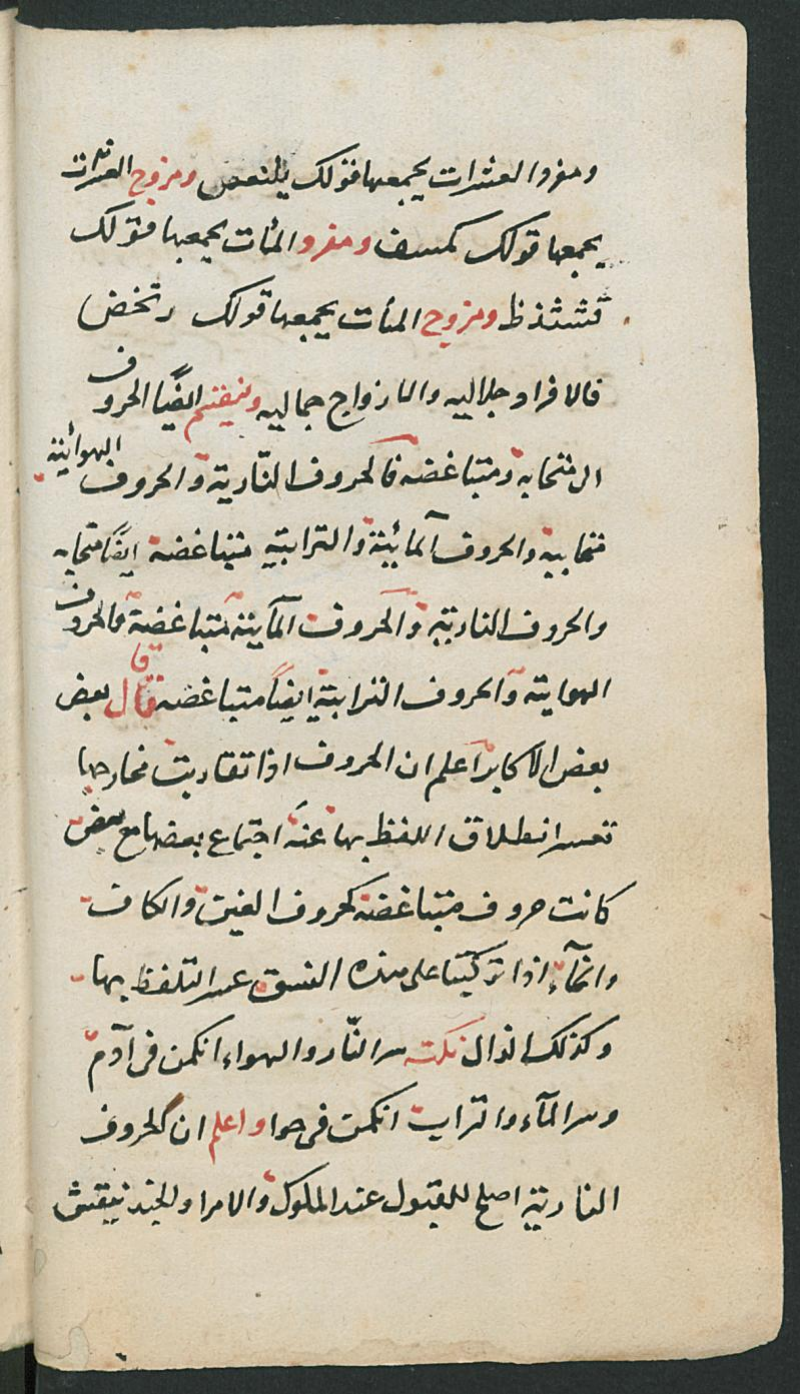 ومفرد العشرات يجمعها قولك يلنعص ومزوج العشرات
يجمعها قولك كمسف ومفرد المئات يجمعها قولك
قشثذظ ومزوج المئات يجمعها قولك رتخض
فالافراد جلاليه والازواج جماليه وينقسم ايضًا الحروف
الى متحابه ومتباغضه فالحروف النّارية والحروف الهوائية
متحابية والحروف المآئية والترابية متباغضة ايضًا متحابه
والحروف النارية والحروف المآيية متباغضة والحروف
الهوايته والحروف الترابية ايضًا متباغضه قال بعض
بعض الاكابر اعلم ان الحروف اذا تقاربت مخارجها
تعسر انطلاق اللفظ بها عند اجتماع بعضها مع بعض
كانت حروف متباغضة كحروف الغين والكاف
والخآء اذا تركبتا على هذه النسق عسر التلفظ بها
وكذلك الدال نكته سر النّار والهواء انكمن فى آدم
وسر المآء والتراب انكمن فى حوا واعلم ان الحروف
النارية اصلح للقبول عند الملوك والامرا والجند ينقش